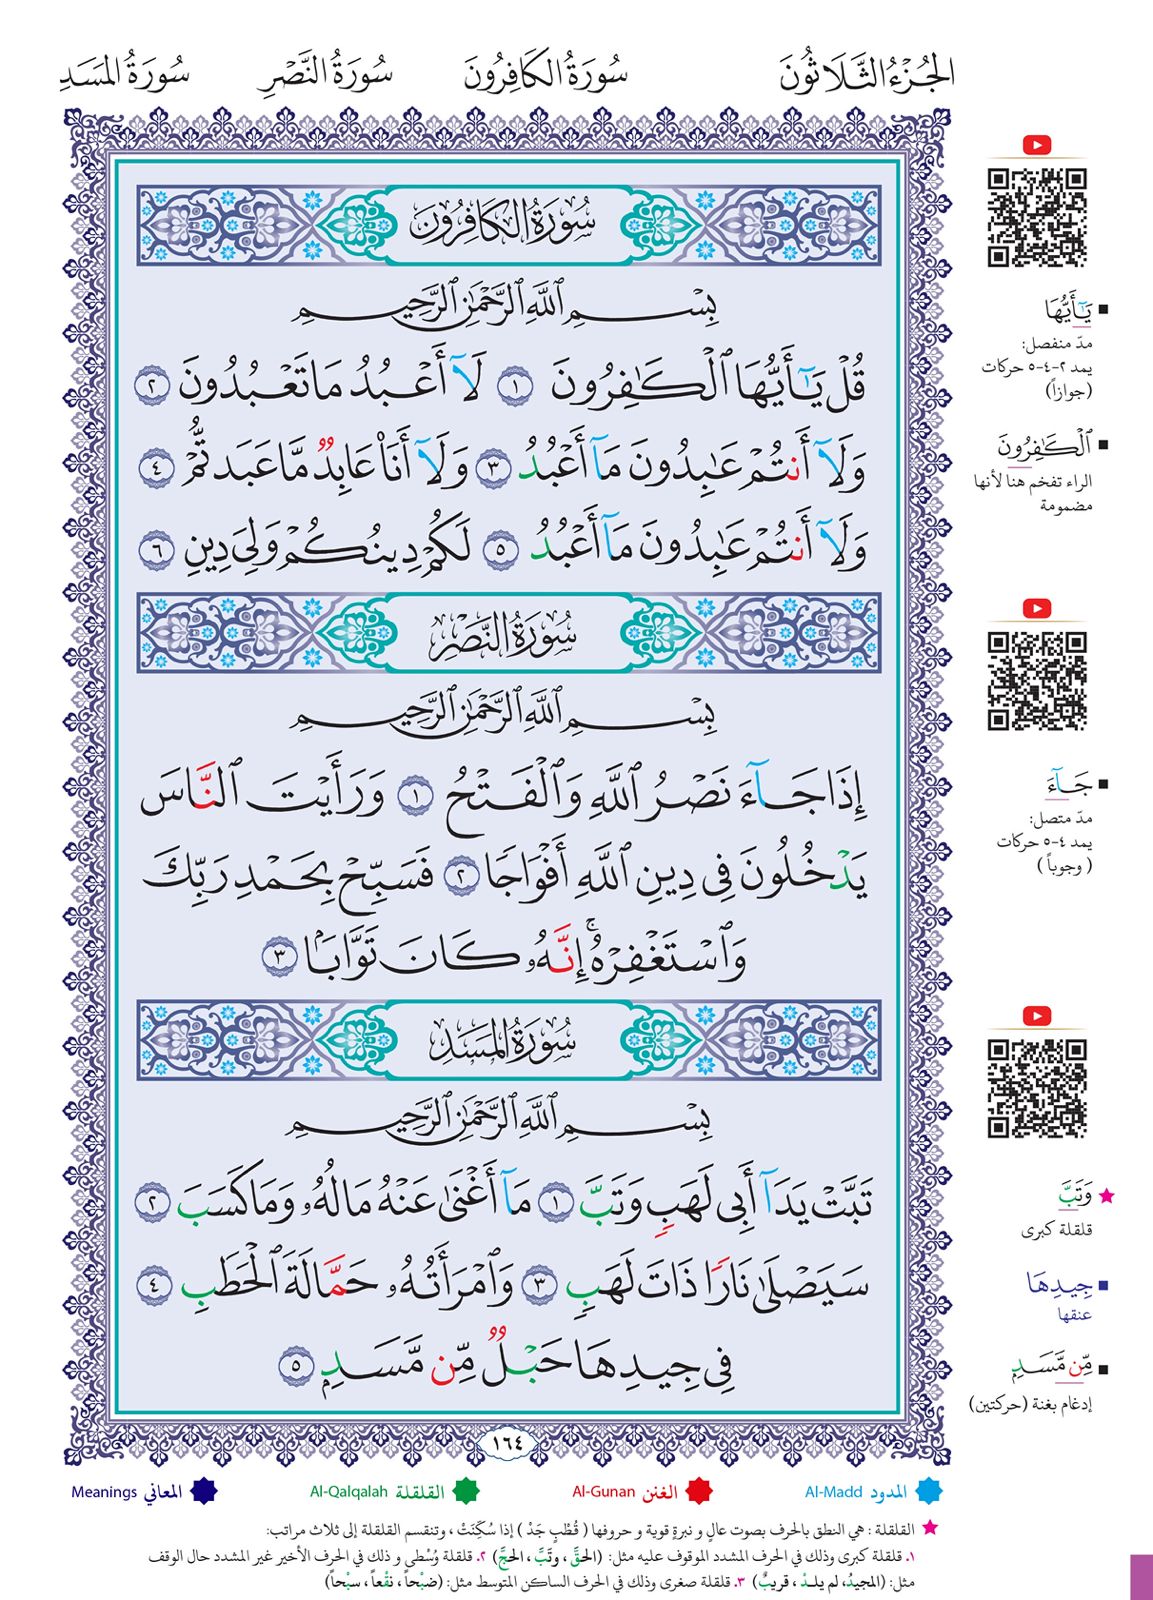 الجُزْءُ الثَّلَاثُونَ سُورَةُ الكَافِرُونَ سُورَةُ النَّصْرِ سُورَةُ المَسَدِ
سُورَةُ الكَافِرُونَ
بِسْمِ ٱللَّهِ ٱلرَّحْمَٰنِ ٱلرَّحِيمِ
قُلْ يَٰٓأَيُّهَا ٱلْكَٰفِرُونَ ١ لَآ أَعْبُدُ مَا تَعْبُدُونَ ٢
وَلَآ أَنتُمْ عَٰبِدُونَ مَآ أَعْبُدُ ٣ وَلَآ أَنَا۠ عَابِدٌ مَّا عَبَدتُّمْ ٤
وَلَآ أَنتُمْ عَٰبِدُونَ مَآ أَعْبُدُ ٥ لَكُمْ دِينُكُمْ وَلِىَ دِينِ ٦
سُورَةُ النَّصْرِ
بِسْمِ ٱللَّهِ ٱلرَّحْمَٰنِ ٱلرَّحِيمِ
إِذَا جَآءَ نَصْرُ ٱللَّهِ وَٱلْفَتْحُ ١ وَرَأَيْتَ ٱلنَّاسَ
يَدْخُلُونَ فِى دِينِ ٱللَّهِ أَفْوَاجًا ٢ فَسَبِّحْ بِحَمْدِ رَبِّكَ
وَٱسْتَغْفِرْهُ ۚ إِنَّهُۥ كَانَ تَوَّابًۢا ٣
سُورَةُ المَسَدِ
بِسْمِ ٱللَّهِ ٱلرَّحْمَٰنِ ٱلرَّحِيمِ
تَبَّتْ يَدَآ أَبِى لَهَبٍ وَتَبَّ ١ مَآ أَغْنَىٰ عَنْهُ مَالُهُۥ وَمَا كَسَبَ ٢
سَيَصْلَىٰ نَارًا ذَاتَ لَهَبٍ ٣ وَٱمْرَأَتُهُۥ حَمَّالَةَ ٱلْحَطَبِ ٤
فِى جِيدِهَا حَبْلٌ مِّن مَّسَدٍۭ ٥
١٦٤
يَٰٓأَيُّهَا
مدّ منفصل:
يمد ٢-٤-٥ حركات
(جوازاً)
ٱلْكَٰفِرُونَ
الراء تفخم هنا لأنها
مضمومة
جَآءَ
مدّ متصل:
يمد ٤-٥ حركات
( وجوباً )
وَتَبَّ
قلقلة كبرى
جِيدِهَا
عنقها
مِّن مَّسَدٍۭ
إدغام بغنة (حركتين)
المدود Al-Madd الغنن Al-Gunan القلقلة Al-Qalqalah المعاني Meanings
القلقلة : هي النطق بالحرف بصوت عالٍ و نبرةٍ قوية و حروفها ( قُطْبٍ جَدْ ) إذا سُكِّنَتْ ، وتنقسم القلقلة إلى ثلاث مراتب:
١. قلقلة كبرى وذلك في الحرف المشدد الموقوف عليه مثل: (الحقَّ ، وتَبَّ ، الحجِّ) ٢. قلقلة وُسْطى و ذلك في الحرف الأخير غير المشدد حال الوقف
مثل: (المجيدُ، لم يلدْ ، قريبٌ) ٣. قلقلة صغرى وذلك في الحرف الساكن المتوسط مثل: (ضبْحاً ، نقْعاً ، سبْحاً)